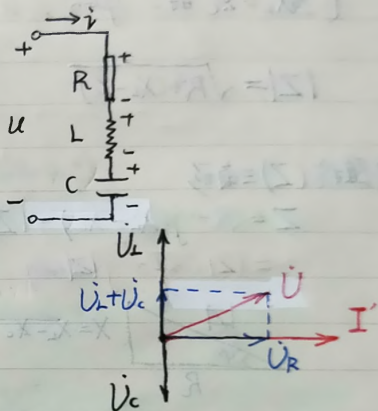 i
+
+
R
-
+
u
L
-
+
C
-
-
U̇L
U̇L+U̇c
U̇
I
U̇R
U̇c